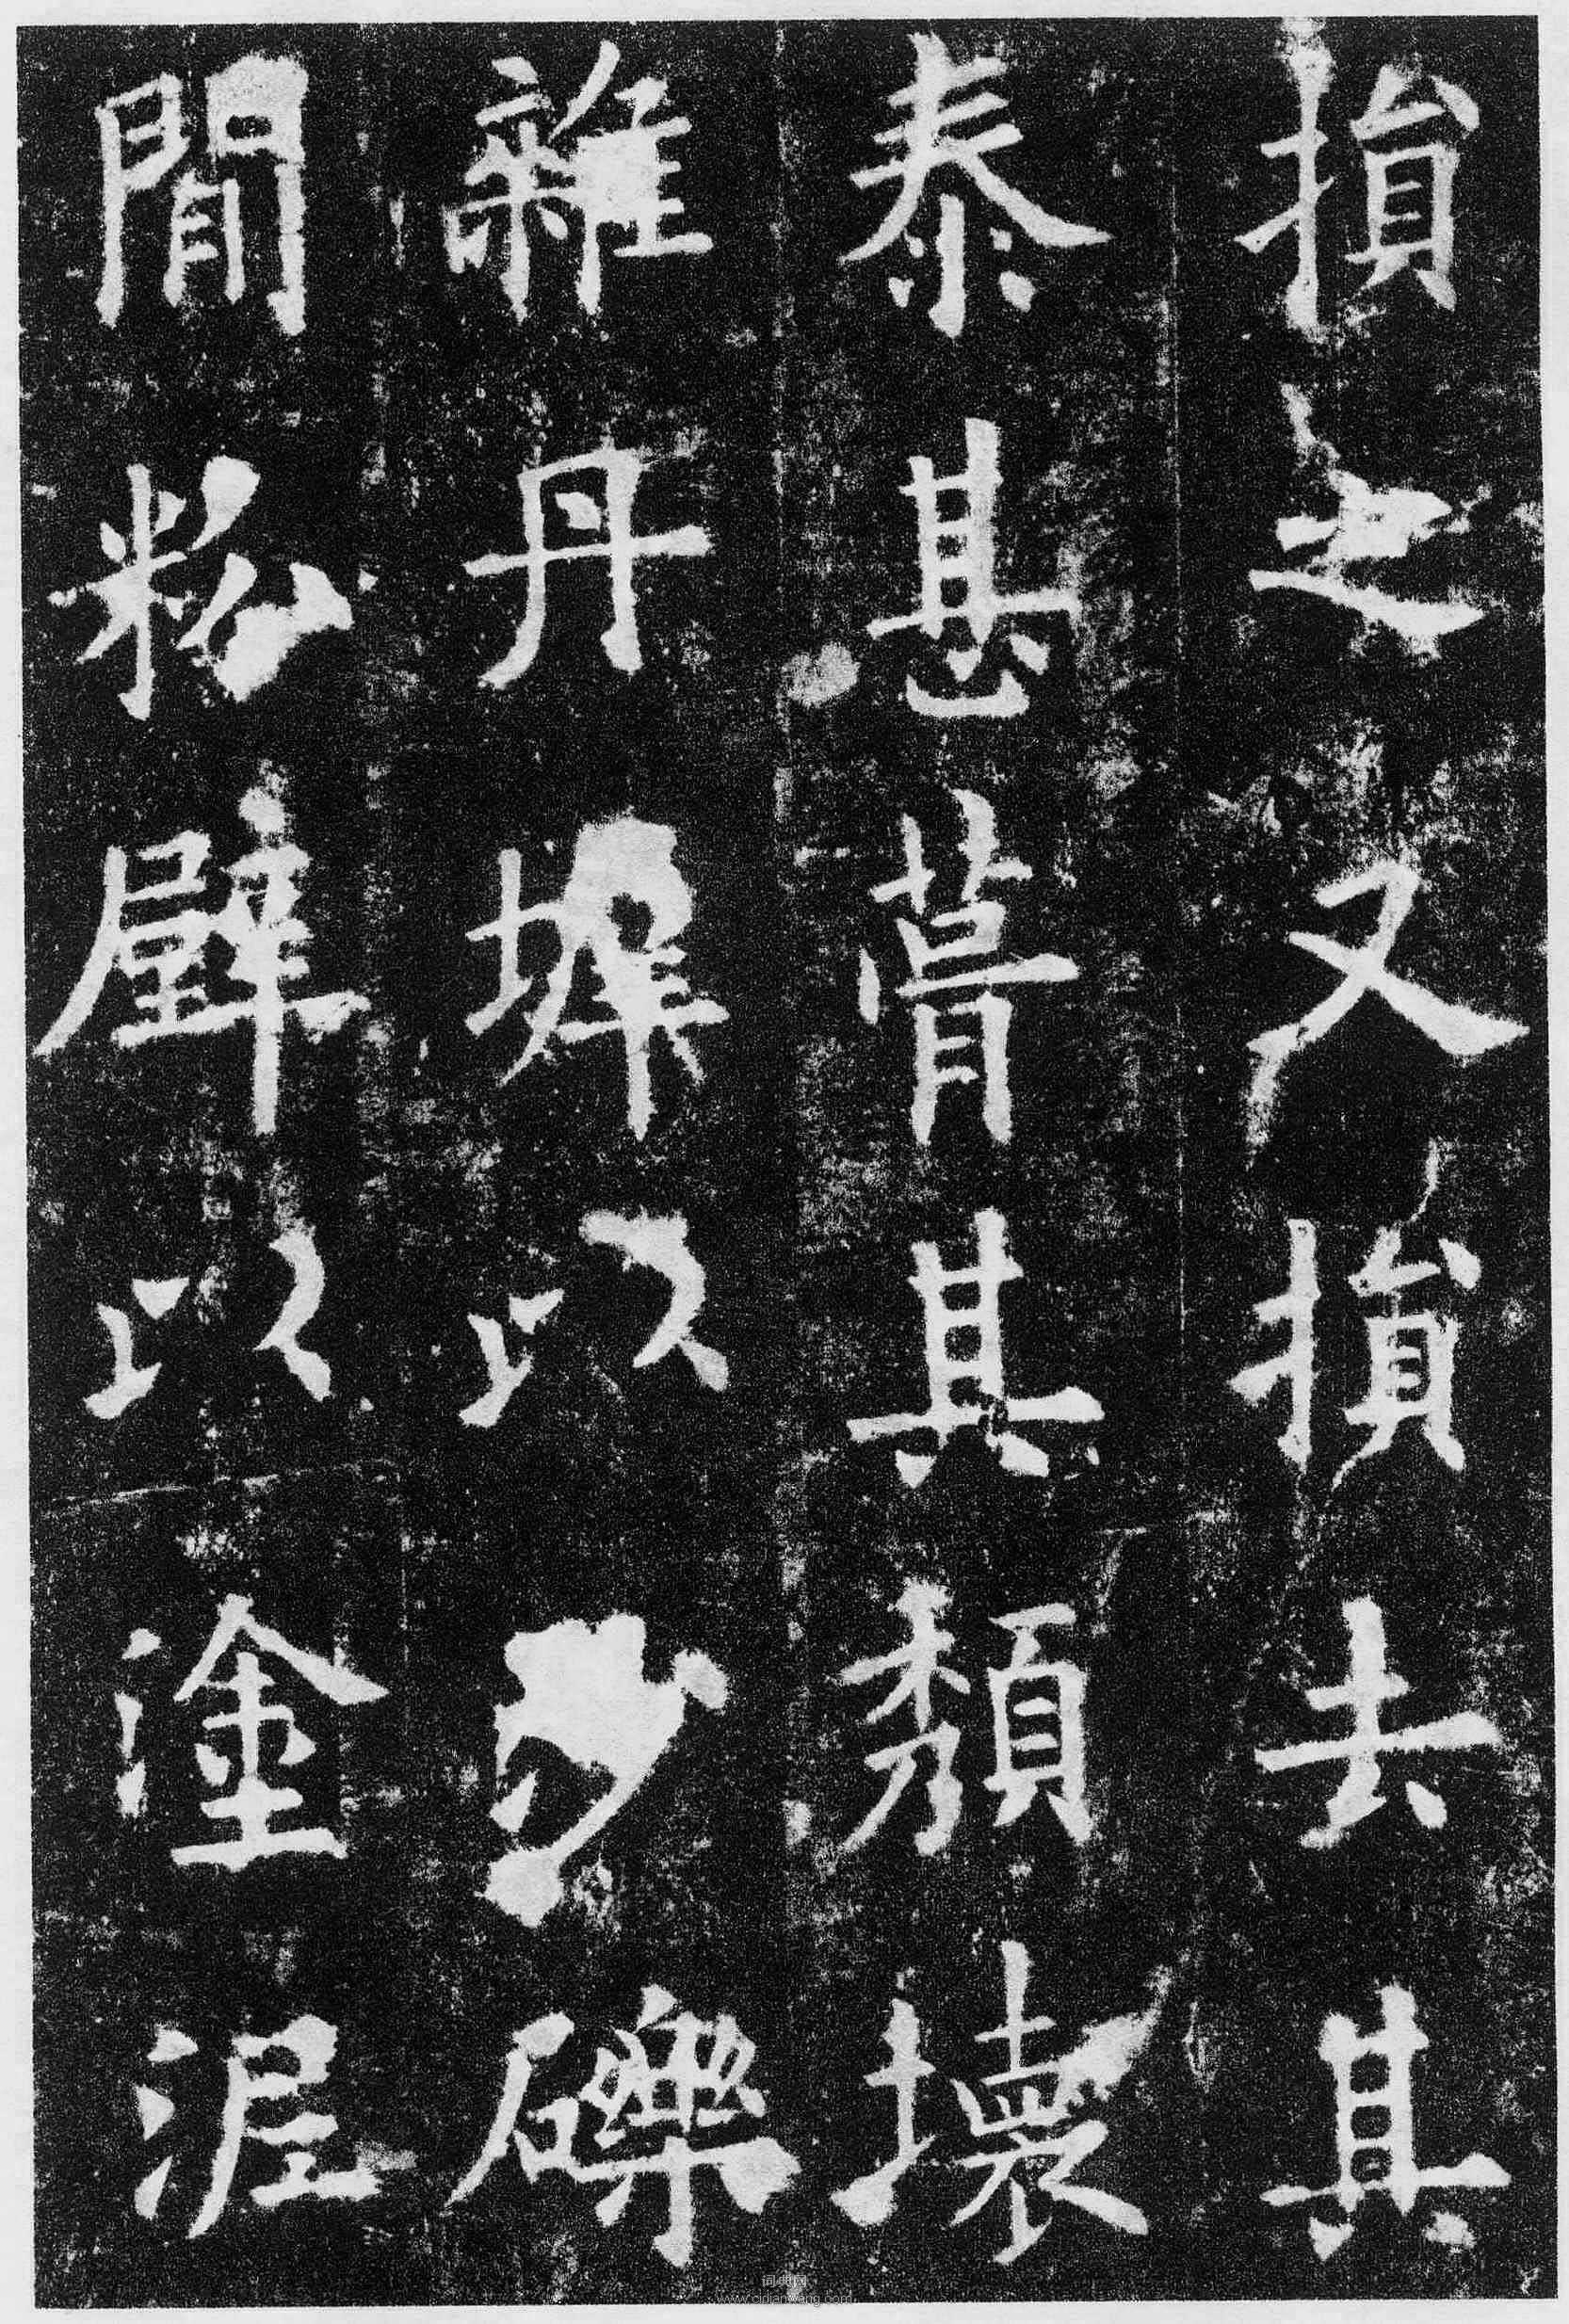 損之又損去其
泰甚葺其頹壞
雜丹墀以沙礫
間粉壁以塗泥
www.cidianwang.com